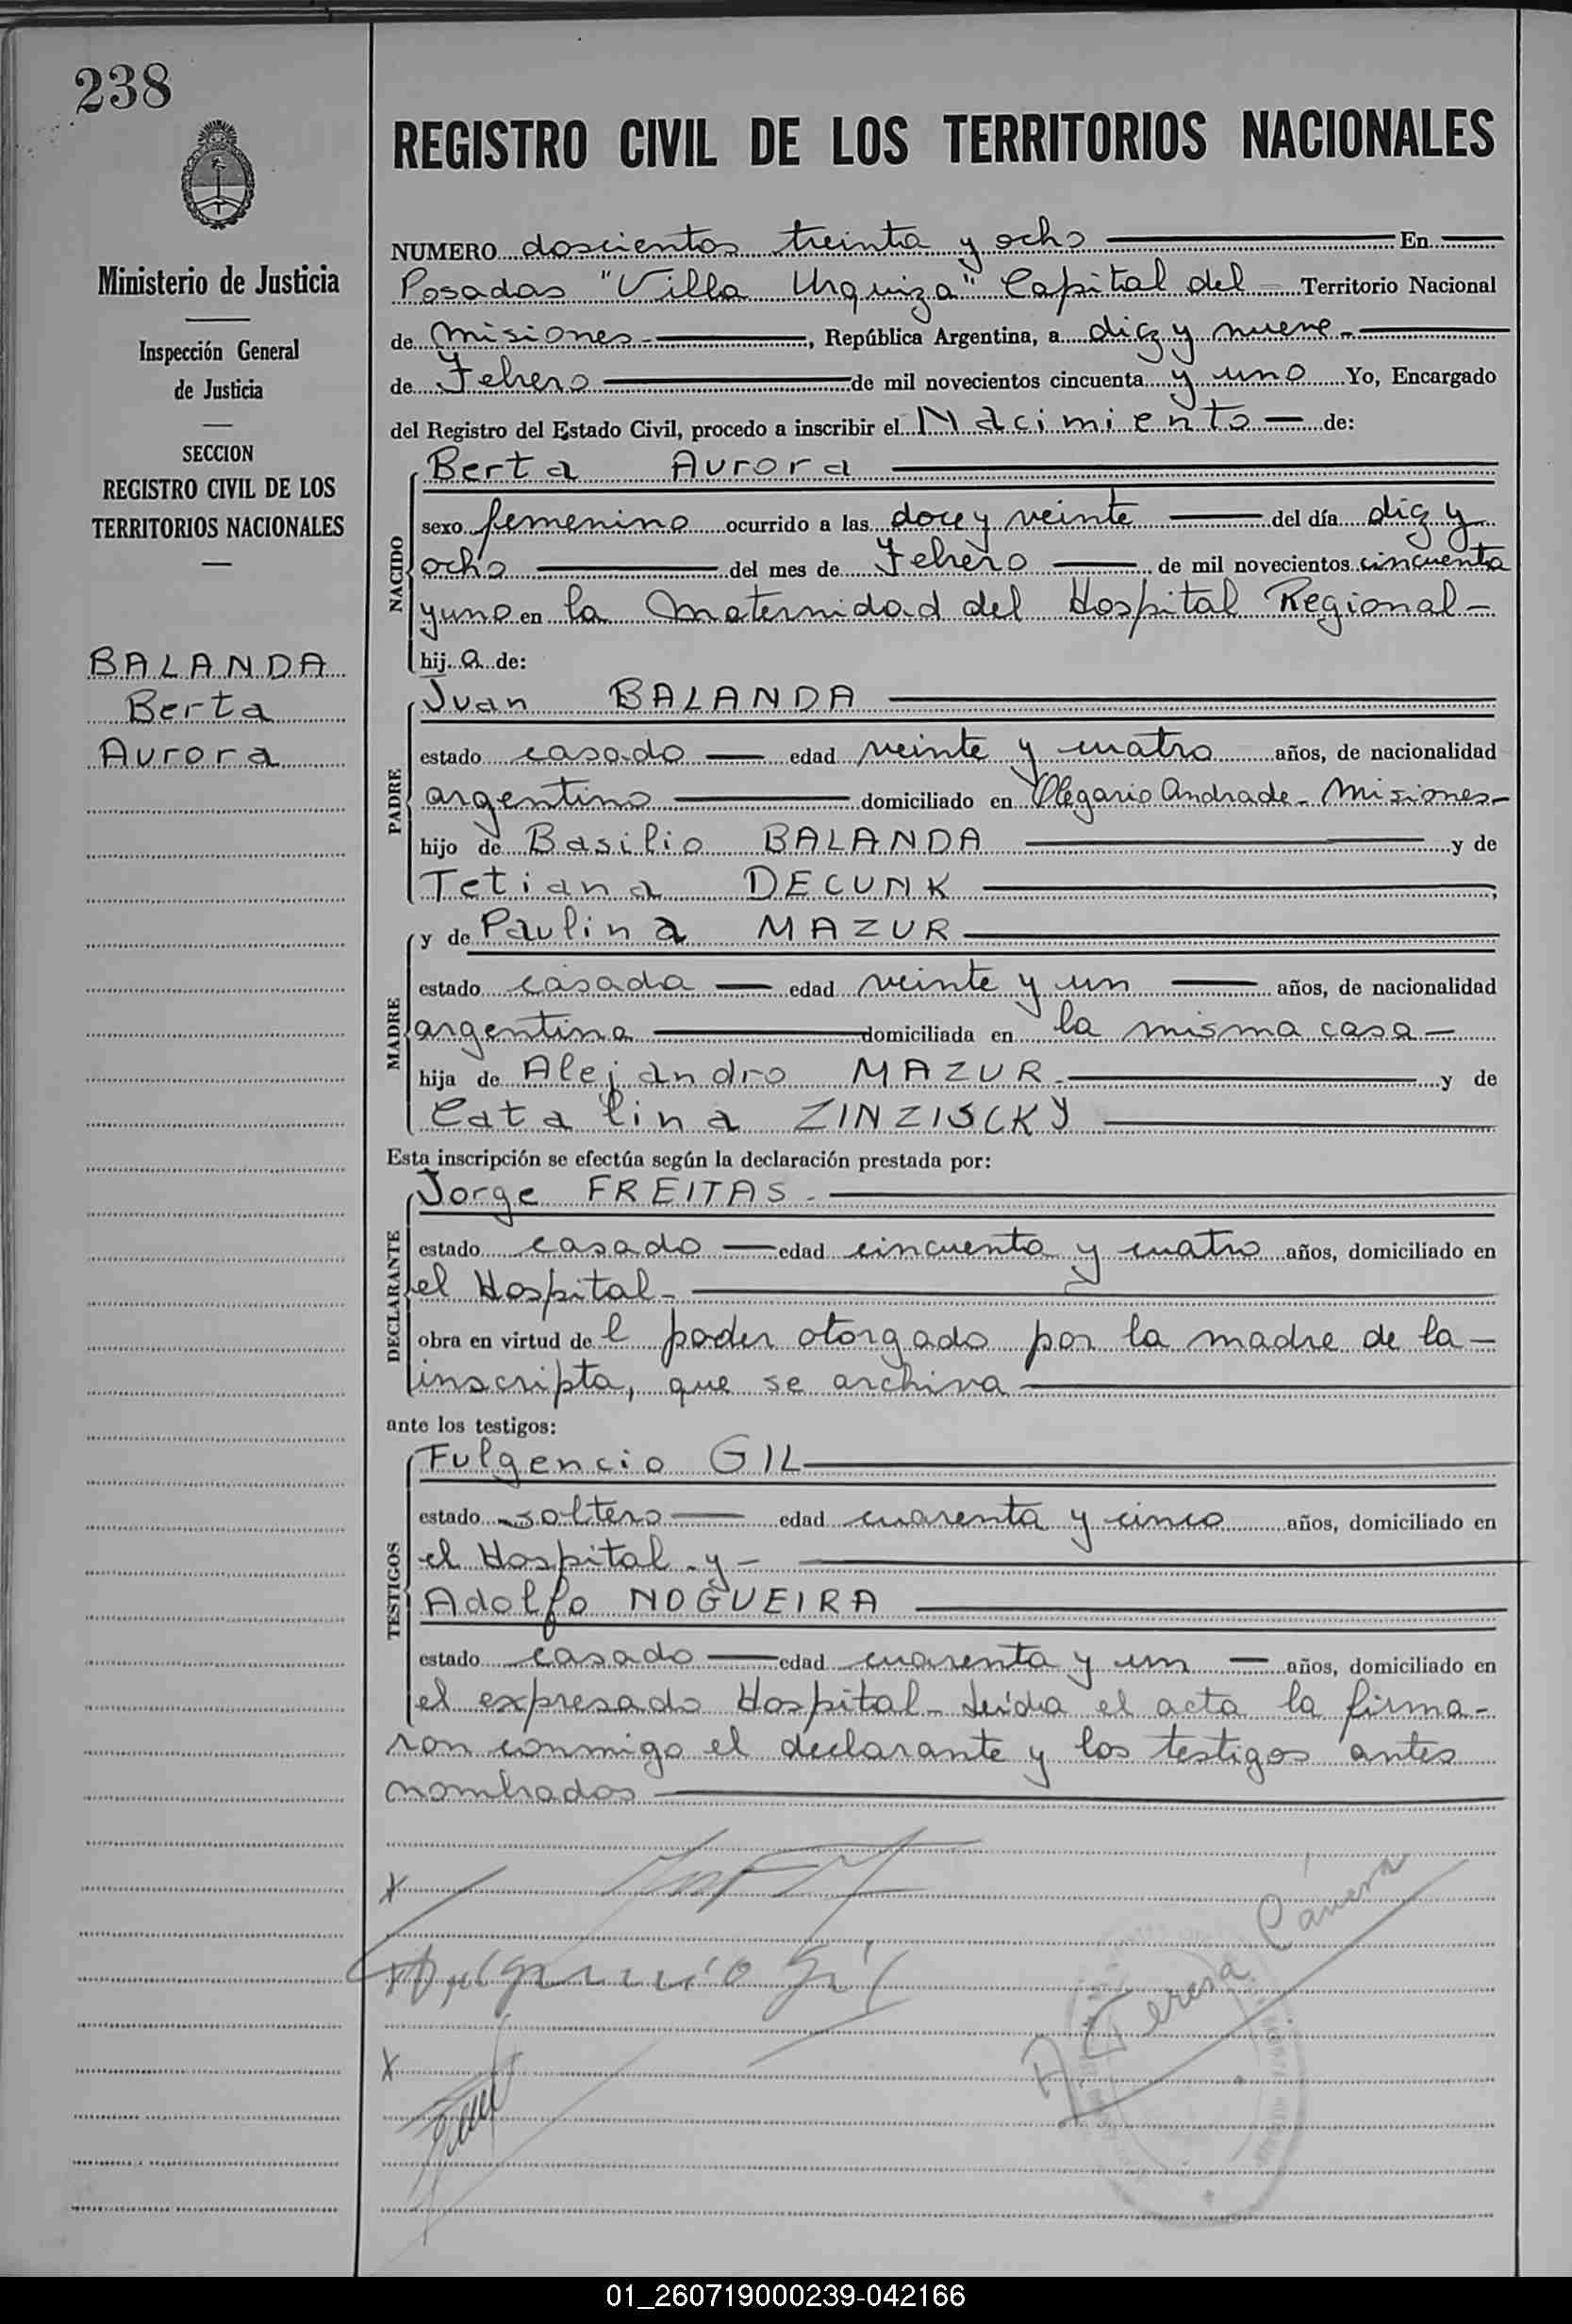 238
Ministerio de Justicia
Inspección General
de Justicia
SECCION
REGISTRO CIVIL DE LOS
TERRITORIOS NACIONALES
BALANDA
Berta
Aurora
REGISTRO CIVIL DE LOS TERRITORIOS NACIONALES
NUMERO doscientos treinta y ocho En
Posadas "Villa Urquiza" Capital del Territorio Nacional
de Misiones, República Argentina, a diez y nueve
de Febrero de mil novecientos cincuenta y uno Yo, Encargado
del Registro del Estado Civil, procedo a inscribir el Nacimiento de:
NACIDO
Berta Aurora
sexo femenino ocurrido a las doce y veinte del día diez y
ocho del mes de Febrero de mil novecientos cincuenta
y uno en la Maternidad del Hospital Regional
hija de:
PADRE
Juan BALANDA
estado casado edad veinte y cuatro años, de nacionalidad
argentino domiciliado en Olegario Andrade - Misiones
hijo de Basilio BALANDA y de
Tetiana DECUNK
MADRE
y de Paulina MAZUR
estado casada edad veinte y un años, de nacionalidad
argentina domiciliada en la misma casa
hija de Alejandro MAZUR y de
Catalina ZINZISCKY
Esta inscripción se efectúa según la declaración prestada por:
DECLARANTE
Jorge FREITAS
estado casado edad cincuenta y cuatro años, domiciliado en
el Hospital
obra en virtud del poder otorgado por la madre de la
inscripta, que se archiva
ante los testigos:
TESTIGOS
Fulgencio GIL
estado soltero edad cuarenta y cinco años, domiciliado en
el Hospital y
Adolfo NOGUEIRA
estado casado edad cuarenta y un años, domiciliado en
el expresado Hospital - Leída el acta la firma-
ron conmigo el declarante y los testigos antes
nombrados
x
Fulgencio Gil
A Teresa Cánera
x
01_260719000239-042166